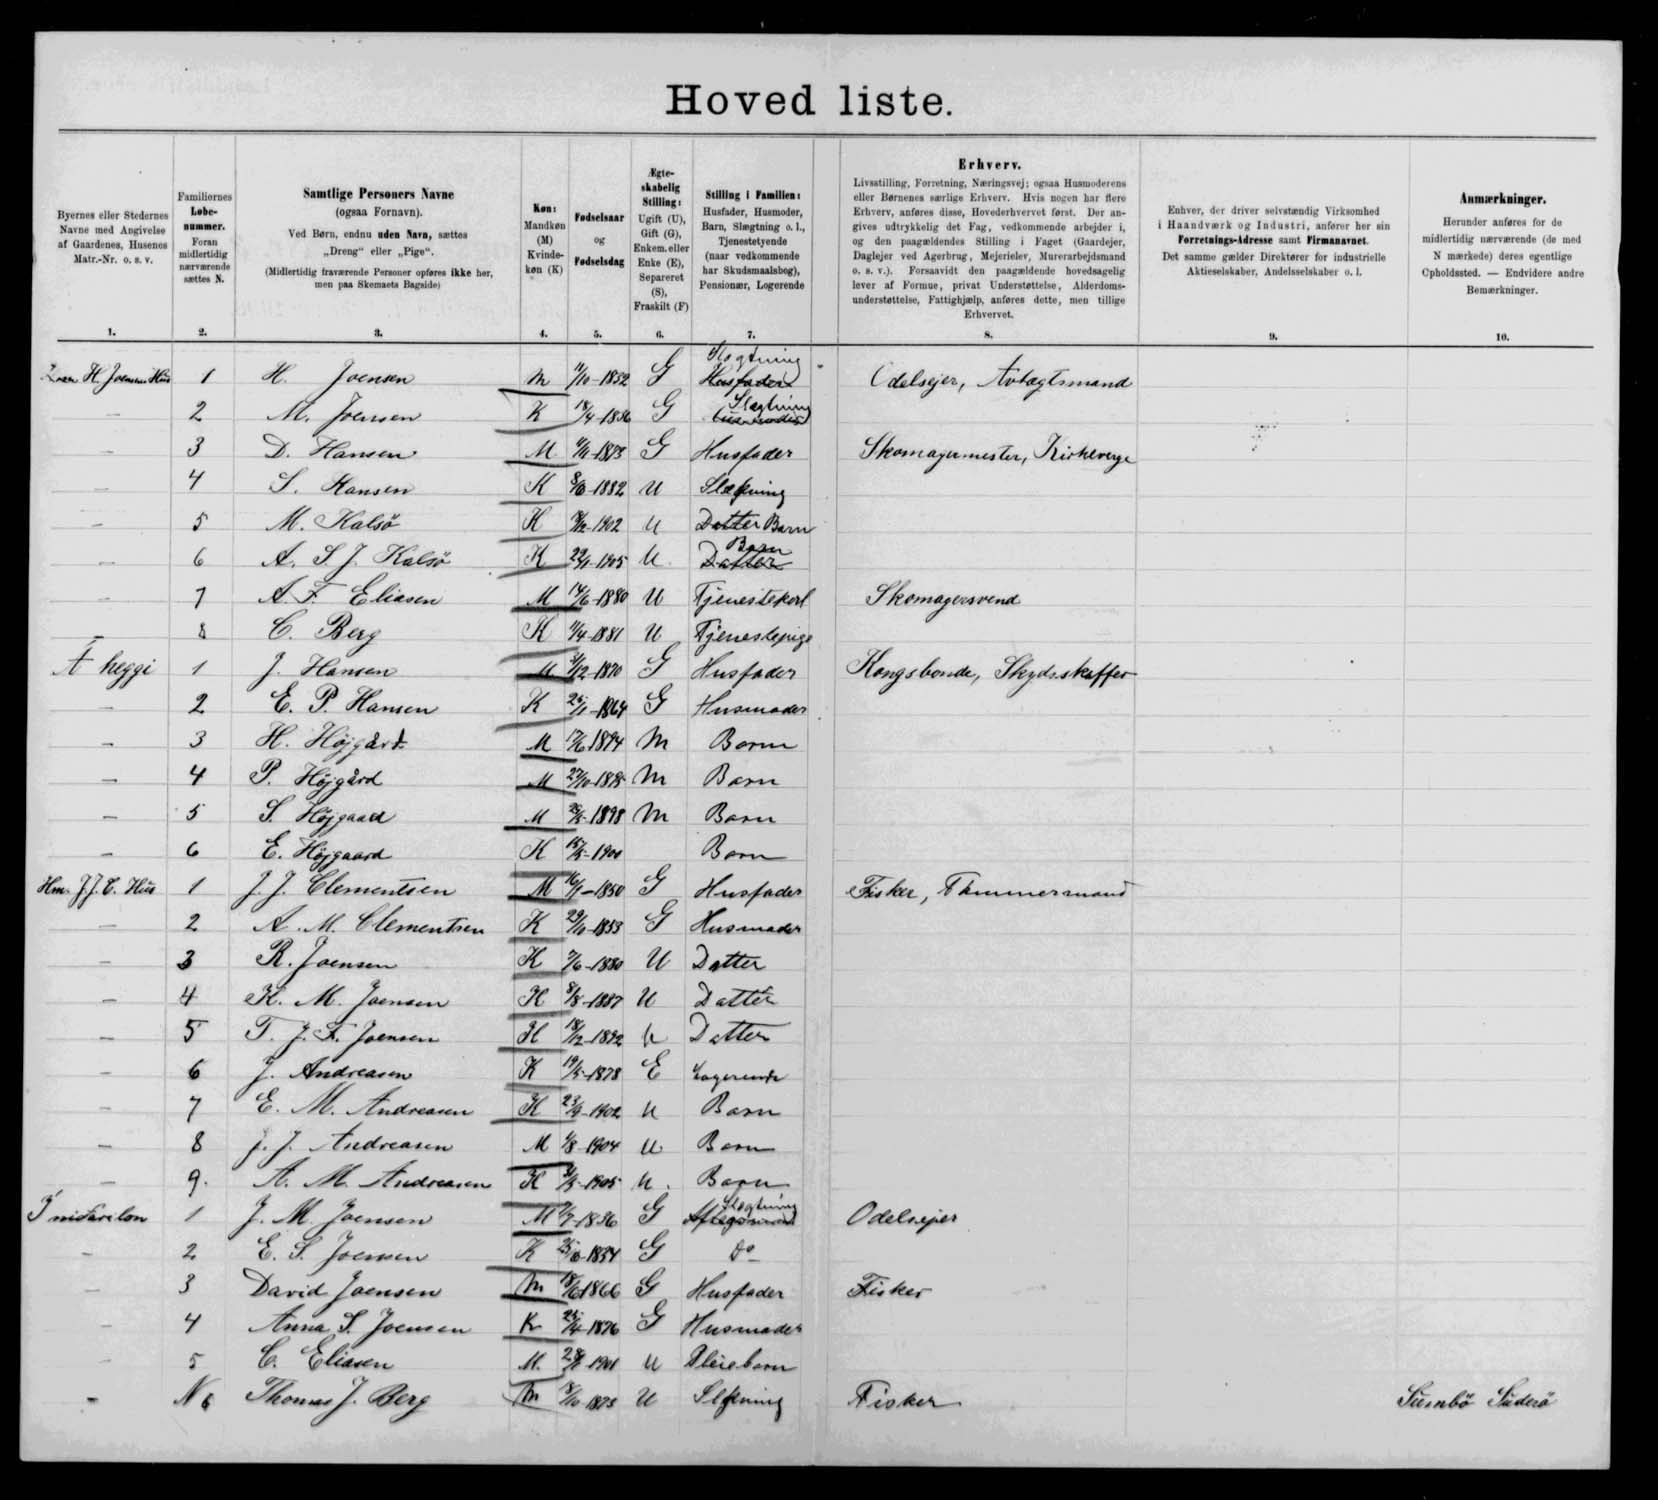 Hoved liste.
Byernes eller Stedernes Navne med Angivelse af Gaardenes, Husenes Matr.-Nr. o. s. v.
Familiernes Løbe-nummer. Foran midlertidig nærværende sættes N.
Samtlige Personers Navne
(ogsaa Fornavn).
Ved Børn, endnu uden Navn, sættes „Dreng“ eller „Pige“.
(Midlertidig fraværende Personer opføres ikke her, men paa Skemaets Bagside)
Køn: Mandkøn (M) Kvinde-køn (K)
Fødselsaar og Fødselsdag
Ægte-skabelig Stilling: Ugift (U), Gift (G), Enkem. eller Enke (E), Separeret (S), Fraskilt (F)
Stilling i Familien: Husfader, Husmoder, Barn, Slægtning o. l., Tjenestetyende (naar vedkommende har Skudsmaalsbog), Pensionær, Logerende
Erhverv.
Livsstilling, Forretning, Næringsvej; ogsaa Husmoderens eller Børnenes særlige Erhverv. Hvis nogen har flere Erhverv, anføres disse, Hovederhvervet først. Der angives udtrykkelig det Fag, vedkommende arbejder i, og den paagældendes Stilling i Faget (Gaardejer, Daglejer ved Agerbrug, Mejerielev, Murerarbejdsmand o. s. v.). Forsaavidt den paagældende hovedsagelig lever af Formue, privat Understøttelse, Alderdomsunderstøttelse, Fattighjælp, anføres dette, men tillige Erhvervet.
Enhver, der driver selvstændig Virksomhed i Haandværk og Industri, anfører her sin Forretnings-Adresse samt Firmanavnet. Det samme gælder Direktører for industrielle Aktieselskaber, Andelsselskaber o. l.
Anmærkninger.
Herunder anføres for de midlertidig nærværende (de med N mærkede) deres egentlige Opholdssted. — Endvidere andre Bemærkninger.
1. 2. 3. 4. 5. 6. 7. 8. 9. 10.
H. Joensens Hus 1 H. Joensen M 1/10-1832 G Slægtning Husfader Odelsejer, Avtægtsmand
— 2 M. Joensen K 18/4-1836 G Slægtning Husmoder
— 3 D. Hansen M 1873 G Husfader Skomagermester, Kirkeverge
— 4 S. Hansen K 1882 U Slægtning
— 5 M. Kalsö K 1902 U Datter Barn
— 6 A. S. J. Kalsö K 29/1-1905 U. Barn Datter
— 7 A. F. Eliasen M 14/6-1880 U Tjenestekarl Skomagersvend
— 8 C. Berg K 1/4-1881 U Tjenestepige
Á heggi 1 J. Hansen M /12-1870 G Husfader Kongsbonde, Skydsskaffer
— 2 E. P. Hansen K 25/1-1864 G Husmoder
— 3 H. Höjgård M 1894 M Barn
— 4 P. Höjgård M 27/10-1895 M Barn
— 5 S. Höjgaard M 1898 M Barn
— 6 E. Höjgaard K 15/5-1900 Barn
Hm. J. J. C. Hus 1 J. J. Clementsen M 16/1-1850 G Husfader Fisker, Tömmermand
— 2 A. M. Clementsen K 29/10-1853 G Husmoder
— 3 R. Joensen K 7/6-1880 U Datter
— 4 K. M. Joensen K 8/8-1887 U Datter
— 5 T. J. F. Joensen K 18/12-1892 U Datter
— 6 J. Andreasen K 19/5-1878 E Logerende
— 7 E. M. Andreasen K 23/9-1902 U Barn
— 8 J. J. Andreasen M 1/8-1904 U Barn
— 9. A. M. Andreasen K /5-1905 U. Barn
1 J. M. Joensen M /7-1836 G Slægtning Odelsejer
— 2 E. S. Joensen K 1834 G Do
— 3 David Joensen M 18/6 1866 G Husfader Fisker
— 4 Anna S. Joensen K 25/4-1876 G Husmoder
— 5 C. Eliasen M. 1901 U Pleiebarn
— N 6 Thomas J. Berg M /10-1873 U Slægtning Fisker Sumbö Suderö